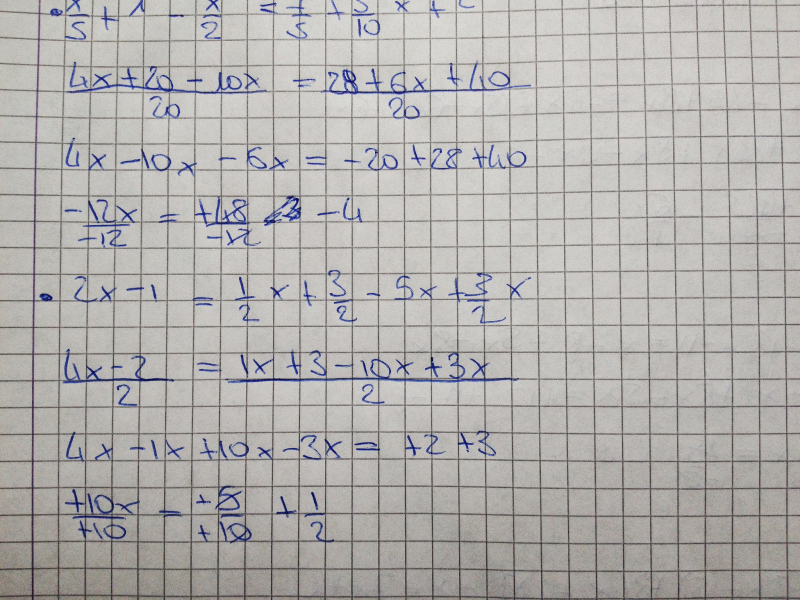 • x/5 + 1 - x/2 = 7/5 + 3/10 x + 2
4x+20-10x/20 = 28+6x+40/20
4x -10x -6x = -20+28+40
-12x/-12 = +48/-12 -4
• 2x-1 = 1/2 x + 3/2 - 5x + 3/2 x
4x-2/2 = 1x+3-10x+3x/2
4x -1x +10x -3x = +2 +3
+10x/+10 = +5/+10 + 1/2